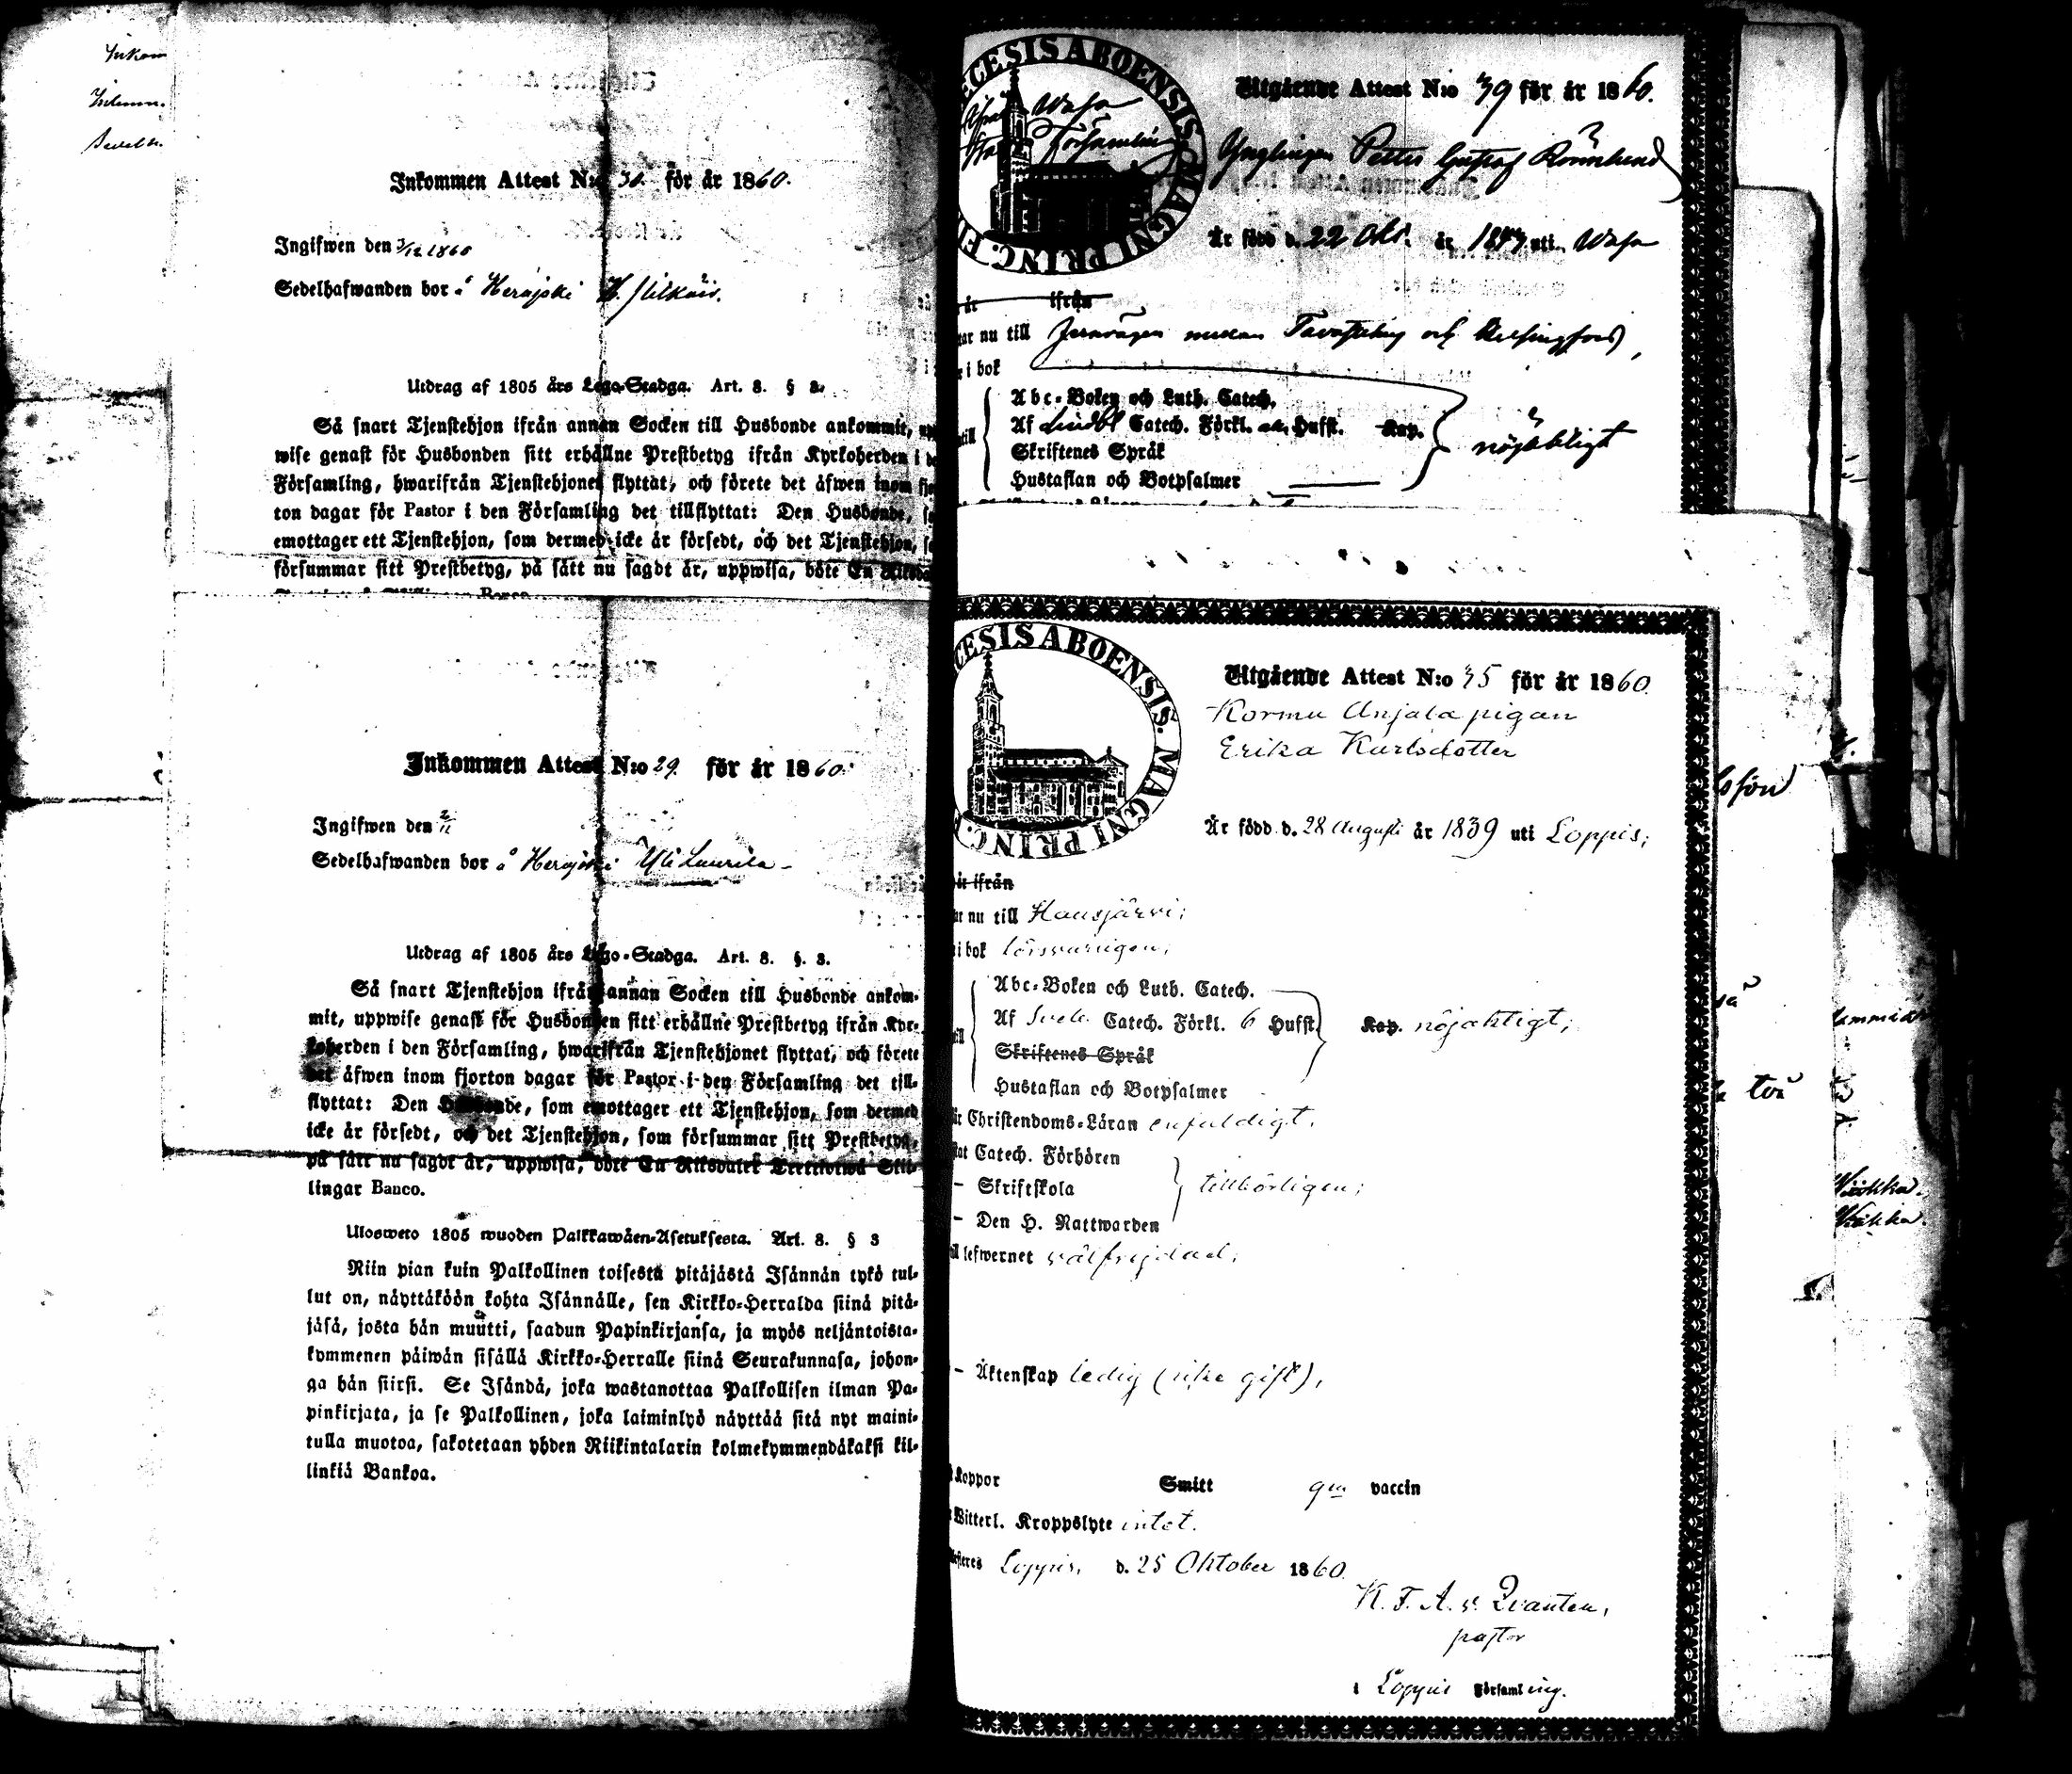 Inkommen Attest N:o 30. för år 1860.
Ingifwen den 3/12 1860
Sedelhafwanden bor å Herajoki
Utdrag af 1805 års Lego-Stadga. Art. 8. § 3.
Så snart Tjenstehjon ifrån annan Socken till Husbonde ankommit,
wise genast för Husbonden sitt erhållne Prestbetyg ifrån Kyrkoherden i
Församling, hwarifrån Tjenstehjonet flyttat, och förete det äfwen inom
ton dagar för Pastor i den Församling det tillflyttat: Den Husbonde,
emottager ett Tjenstehjon, som dermed icke är försedt, och det Tjenstehjon,
försummar sitt Prestbetyg, på sätt nu sagdt är, uppwisa, böte En
Inkommen Attest N:o 29. för år 1860.
Ingifwen den
Sedelhafwanden bor å Herajoki Yli Laurila
Utdrag af 1805 års Lego-Stadga. Art. 8. §. 3.
Så snart Tjenstehjon ifrån annan Socken till Husbonde ankom-
mit, uppwise genast för Husbonden sitt erhållne Prestbetyg ifrån Kyr-
koherden i den Församling, hwarifrån Tjenstehjonet flyttat, och förete
det äfwen inom fjorton dagar för Pastor i den Församling det till-
flyttat: Den Husbonde, som emottager ett Tjenstehjon, som dermed
icke är försedt, och det Tjenstehjon, som försummar sitt Prestbetyg,
på sätt nu sagdt är, uppwisa, böte En Riksdaler Trettiotwå Skil-
lingar Banco.
Ulosweto 1805 wuoden Palkkawäen-Asetuksesta. Art. 8. § 3
Niin pian kuin Palkollinen toisesta pitäjästä Isännän tykö tul-
lut on, näyttäköön kohta Isännälle, sen Kirkko-Herralda siinä pitä-
jäsä, josta hän muutti, saadun Papinkirjansa, ja myös neljäntoista-
kymmenen päiwän sisällä Kirkko-Herralle siinä Seurakunnasa, johon-
ga hän siirsi. Se Isändä, joka wastanottaa Palkollisen ilman Pa-
pinkirjata, ja se Palkollinen, joka laiminlyö näyttää sitä nyt maini-
tulla muotoa, sakotetaan yhden Riikintalarin kolmekymmendäkaksi kil-
linkiä Bankoa.
CESIS ABOENSIS. MAGNI PRINC.
Wasa
Församling
Utgående Attest N:o 39 för år 1860.
Ynglingen Petter Gustaf Rönnlund
Är född d. 22 Okt. år uti Wasa
ifrån
nu till Jernvägen mellan Tavastehus och Helsingfors,
i bok
Abc-Boken och Luth. Catech.
Af Lindbl Catech. Förkl. Hufst. Kap. nöjaktigt
Skriftenes Språk
Hustaflan och Botpsalmer
CESIS ABOENSIS. MAGNI PRINC.
Utgående Attest N:o 35 för år 1860.
Kormu Anjala pigan
Erika Karlsdotter
Är född d. 28 Augusti år 1839 uti Loppis;
ifrån
nu till Hausjärvi;
i bok försvarligen,
Abc-Boken och Luth. Catech.
Af Sveb. Catech. Förkl. 6 Hufst. Kap. nöjaktigt;
Skriftenes Språk
Hustaflan och Botpsalmer
Christendoms-Läran enfaldigt,
Catech. Förhören
- Skriftskola tillbörligen;
- Den H. Nattwarden
lefwernet välfrejdad;
- Äktenskap ledig (icke gift),
Koppor Smitt gm vaccin
Witterl. Kroppslyte intet.
Loppis, d. 25 Oktober 1860.
K. F. A. v. Qvanten,
pastor
i Loppis Församling.